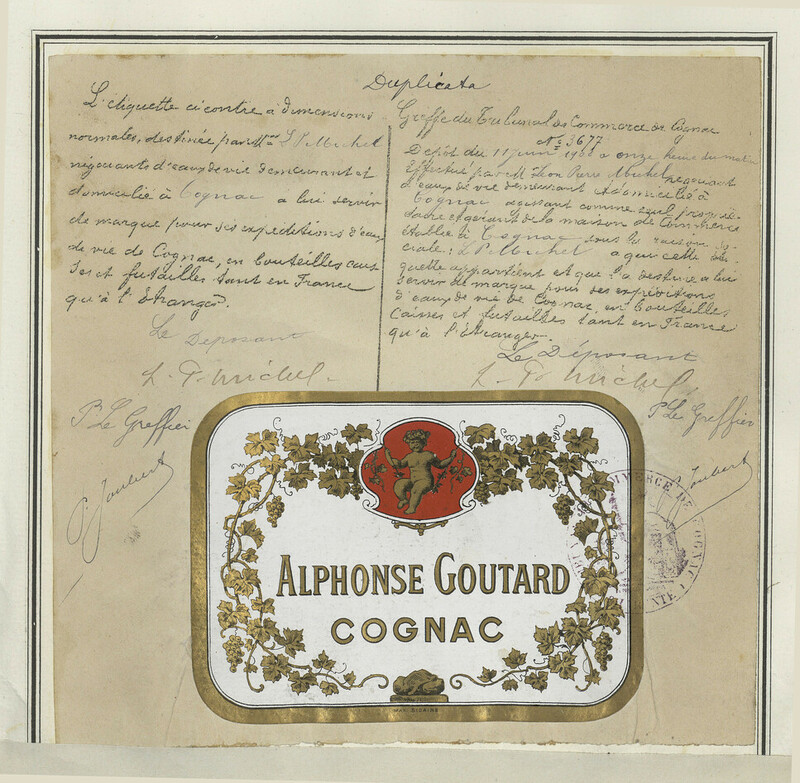 Duplicata
L'étiquette ci contre à dimensions
normales, destinée par Mr L P Michel
négociants d'eaux de vie demeurant et
domicilié à Cognac a lui servir
de marque pour ses expéditions d'eaux
de vie de Cognac, en bouteilles cais
ses et futailles tant en France
qu'à l'Etranger.
Le Déposant
L. P. Michel.
Pr Le Greffier
P. Joubert
Greffe du Tribunal de Commerce de Cognac
No 3677
Dépôt du 11 juin à onze heure du matin
Effectué par M. Léon Pierre Michel négociant
d'eaux de vie demeurant et domicilié à
Cognac agissant comme seul proprié-
taire et gérant de la maison de Commerce
établie à Cognac sous la raison so-
ciale: L P Michel a qui cette éti
quette appartient et que l'a destine a lui
servir de marque pour ses expéditions
d'eaux de vie de Cognac, en bouteilles
Caisses et futailles tant en France
qu'à l'étranger.
Le Déposant
L. P. Michel.
Pr Le Greffier
Joubert
ALPHONSE GOUTARD
COGNAC